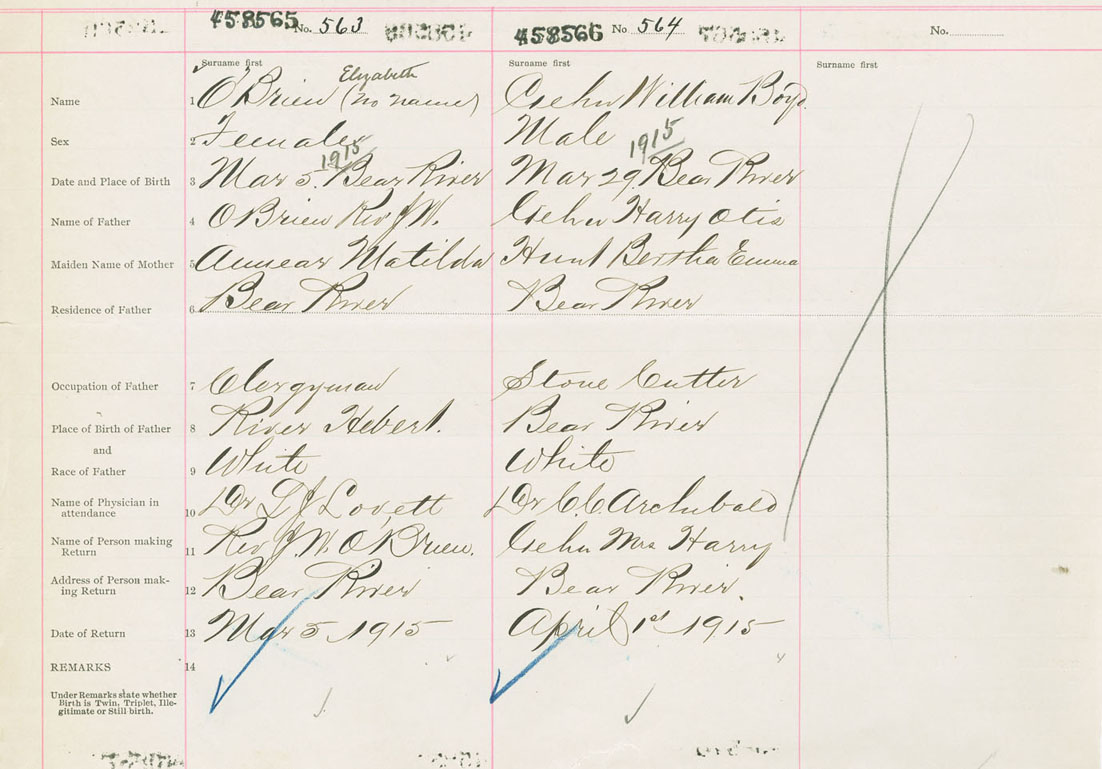 458565 No. 563 458566 No 564 No.
Surname first Surname first Surname first
Elizabeth
Name 1 O'Brien (no name) William Boyd
Sex 2 Female Male
1915 1915
Date and Place of Birth 3 Mar 5. Bear River Mar 29 Bear River
Name of Father 4 O'Brien Rev J W. Harry Otis
Maiden Name of Mother 5 Annear Matilda Hunt Bertha Emma
Residence of Father 6 Bear River Bear River
Occupation of Father 7 Clergyman Stone Cutter
Place of Birth of Father 8 River Hebert. Bear River
and
Race of Father 9 White White
Name of Physician in
attendance 10 Dr L J Lovett Dr C.C. Archibald
Name of Person making
Return 11 Rev J. W. O'Brien. Mrs Harry
Address of Person mak-
ing Return 12 Bear River Bear River.
Date of Return 13 Mar 5 1915 April 1st 1915
REMARKS 14
Under Remarks state whether
Birth is Twin, Triplet, Ille-
gitimate or Still birth.